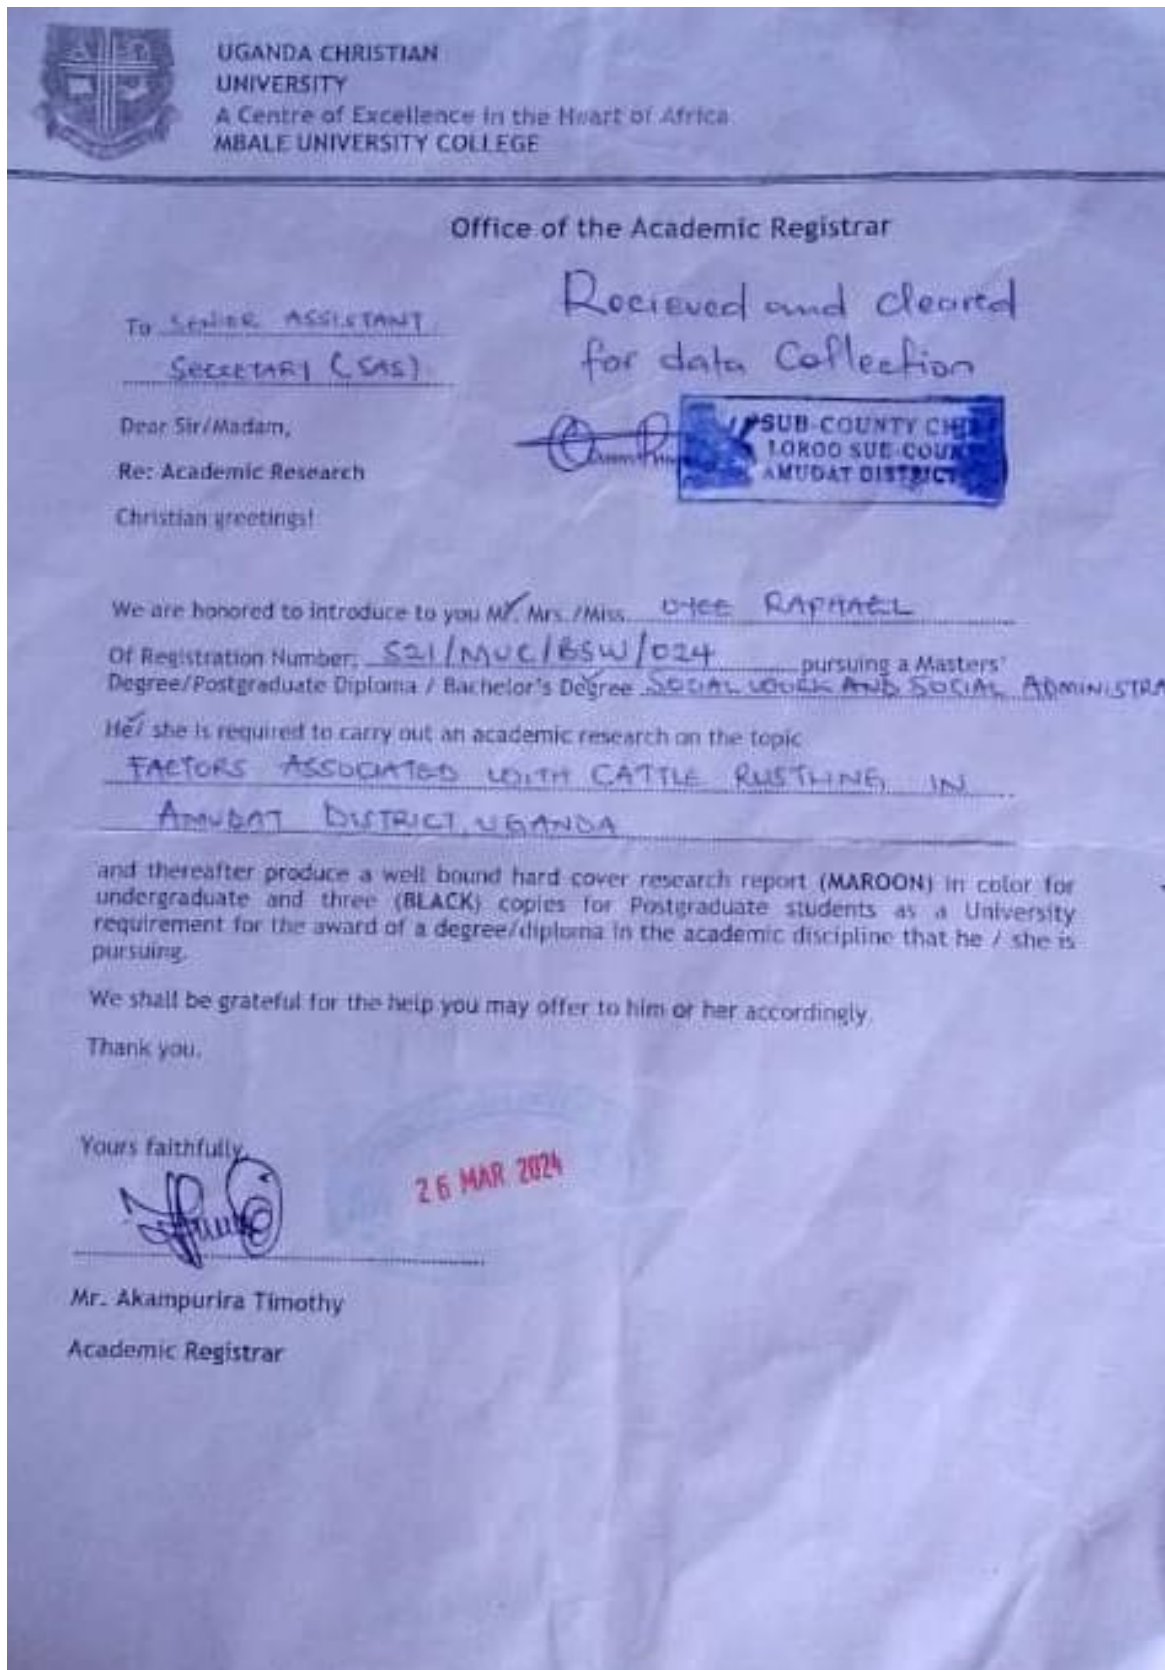 UGANDA CHRISTIAN
UNIVERSITY
A Centre of Excellence in the Heart of Africa
MBALE UNIVERSITY COLLEGE
Office of the Academic Registrar
Recieved and cleared
for data Collection
To SENIOR ASSISTANT
SECRETARY (SAS)
SUB-COUNTY CHIEF
LOROO SUB-COUN
AMUDAT DISTRICT
Dear Sir/Madam,
Re: Academic Research
Christian greetings!
We are honored to introduce to you Mr. Mrs./Miss. RAPHAEL
Of Registration Number: S21/MUC/BSW/024 pursuing a Masters'
Degree/Postgraduate Diploma / Bachelor's Degree SOCIAL WORK AND SOCIAL ADMINISTRA
He/ she is required to carry out an academic research on the topic
FACTORS ASSOCIATED WITH CATTLE RUSTLING IN
AMUDAT DISTRICT, UGANDA
and thereafter produce a well bound hard cover research report (MAROON) in color for
undergraduate and three (BLACK) copies for Postgraduate students as a University
requirement for the award of a degree/diploma in the academic discipline that he / she is
pursuing.
We shall be grateful for the help you may offer to him or her accordingly.
Thank you.
Yours faithfully,
26 MAR 2024
Mr. Akampurira Timothy
Academic Registrar